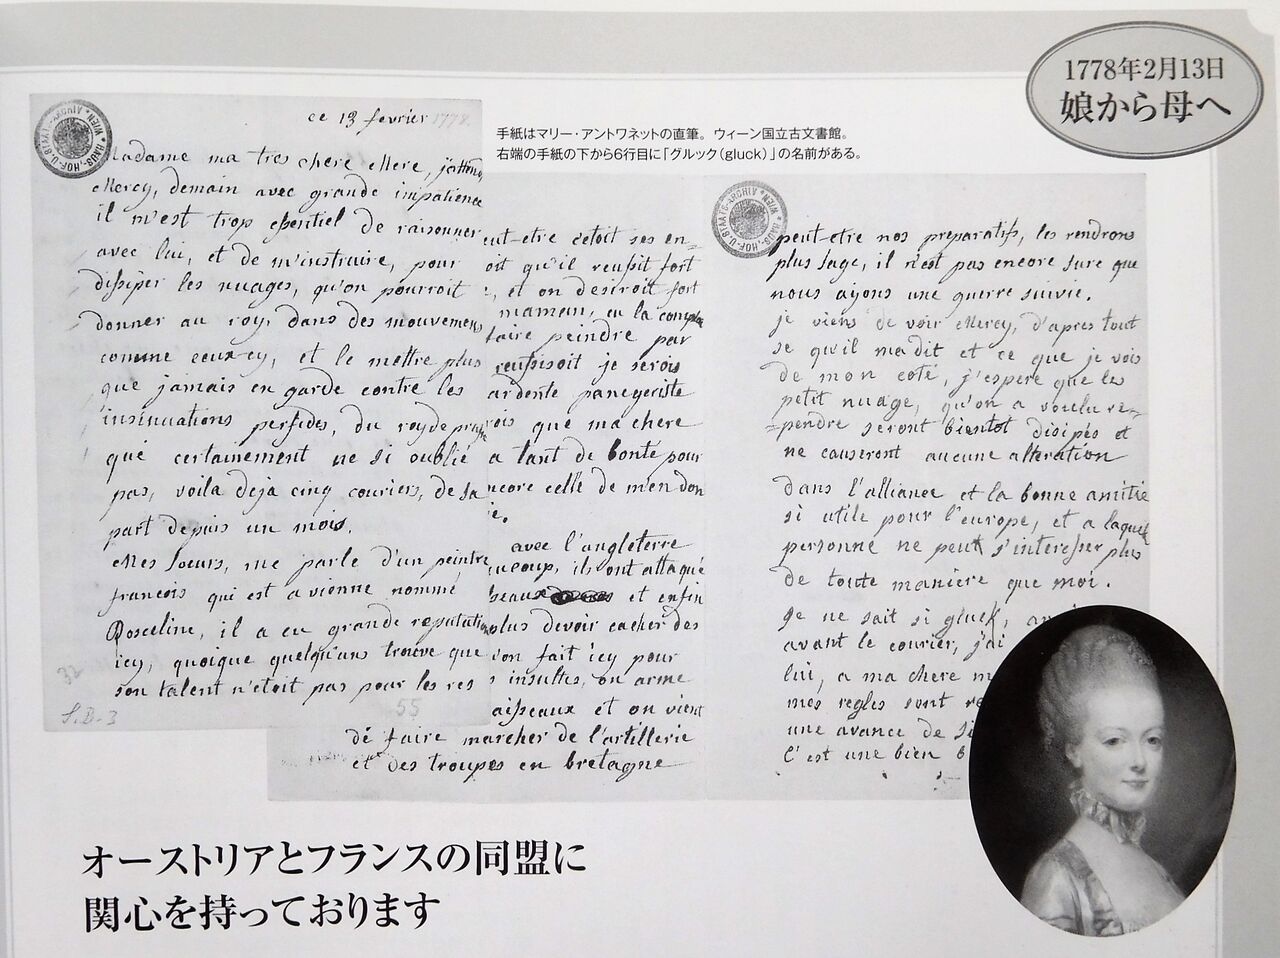 1778年2月13日
娘から母へ
手紙はマリー・アントワネットの直筆。ウィーン国立古文書館。
右端の手紙の下から6行目に「グルック（gluck）」の名前がある。
HAUS-HOF-U.STAATS-ARCHIV WIEN
ce 13 fevrier 1778.
Madame ma tres chere Mere, j'attend
Mercy, demain avec grande impatience
il m'est trop essentiel de raisonner
avec lui, et de m'instruire, pour
dissiper les nuages, qu'on pourroit
donner au roy, dans des mouvemens
comme ceux cy, et le mettre plus
que jamais en garde contre les
insinuations perfides, du roy de
que certainement ne si oublie
pas, voila deja cinq couriers, de sa
part depuis un mois.
Mes soeurs, me parle d'un peintre
francois qui est a vienne nommé
Rosceline, il a eu grande reputation
icy, quoique quelqu'uns trouve que
son talent n'etoit pas pour les res
32
S.B-3
55
eut-etre cetoit ses en-
oit qu'il reussit fort
, et on desiroit fort
maman, en la
faire peindre par
reussisoit je serois
ardente panegeriste
ois que ma chere
a tant de bonté pour
ncore celle de m'en don
e.
avec l'angleterre
ucoup, ils ont attaqué
seaux et enfin
plus devoir cacher des
'on fait icy pour
s insultes, on arme
aisseaux et on vient
de faire marcher de l'artillerie
et des troupes en bretagne
HAUS-HOF-U.STAATS-ARCHIV WIEN
peut-etre nos preparatifs, les rendrons
plus sage, il n'est pas encore sure que
nous ayons une guerre suivie.
je viens de voir Mercy, d'apres tout
se qu'il ma dit et ce que je vois
de mon coté, j'espere que les
petit nuage, qu'on a voulu re-
pendre seront bientot disipés et
ne causeront aucune alteration
dans l'alliance et la bonne amitié
si utile pour l'europe, et a laquel
personne ne peut s'interesser plus
de toute maniere que moi.
je ne sait si gluck,
avant le courier, j'ai
lui, a ma chere m
mes regles sont re
une avance de si
C'est une bien b
オーストリアとフランスの同盟に
関心を持っております